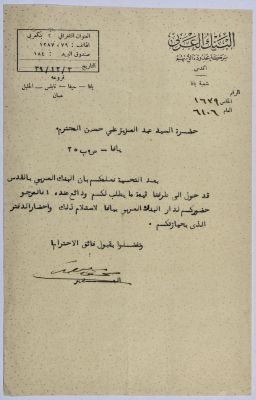 البنك العربي
شركة محدودة الاسهم
القدس
شعبة يافا
الرقم
الخاص ١٦٧٩
العام ٦١٠٦
العنوان التلغرافي : بنكعربي
الهاتف : ٧٩ / ١٢٨٧
صندوق البريد : ١٨٤
التاريخ ٣٩/١٢/٣
فروعه
يافا - حيفا - نابلس - الخليل
عمان
حضرة السيد عبد العزيز علي حسن المحترم
يافا - ص ب ٢٥
بعد التحية نعلمكم بان البنك العربي بالقدس
قد حول الى طرفنا قيمة ما يطلب لكم ودائع عنده فالمرجو
حضوركم لدار البنك العربي بيافا لاستلام ذلك واحضار الدفتر
الذي بحيازتكم
وتفضلوا بقبول فائق الاحترام
المدير